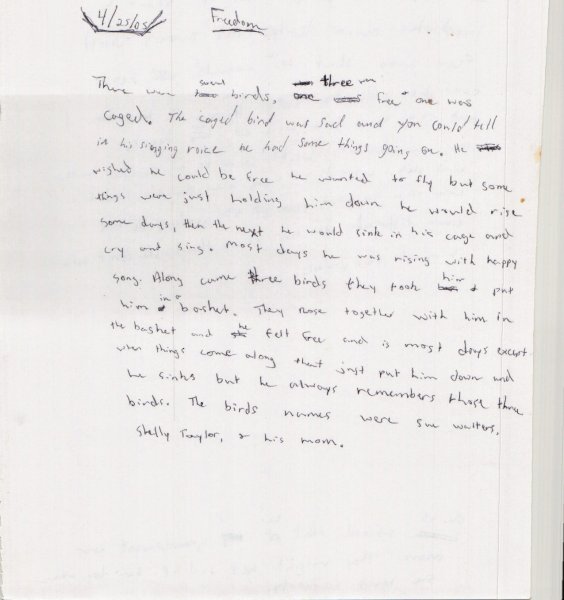 4/25/05 Freedom
There were several birds, three were free & one was
caged. The caged bird was sad and you could tell
in his singing voice he had some things going on. He
wished he could be free he wanted to fly but some
things were just holding him down he would rise
some days, then the next he would sink in his cage and
cry and sing. most days he was rising with happy
song. Along came three birds they took him & put
him in a basket. They rose together with him in
the basket and he felt free and is most days except
when things come along that just put him down and
he sinks but he always remembers those three
birds. The birds names were sue walters,
Shelly Taylor, & his mom.